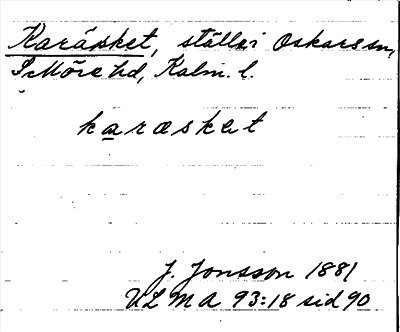 Karåsket, ställe i Oskars sn,
S. Möre hd, Kalm. l.
karæsket
J. Jonsson 1881
ULMA 93:18 sid 90